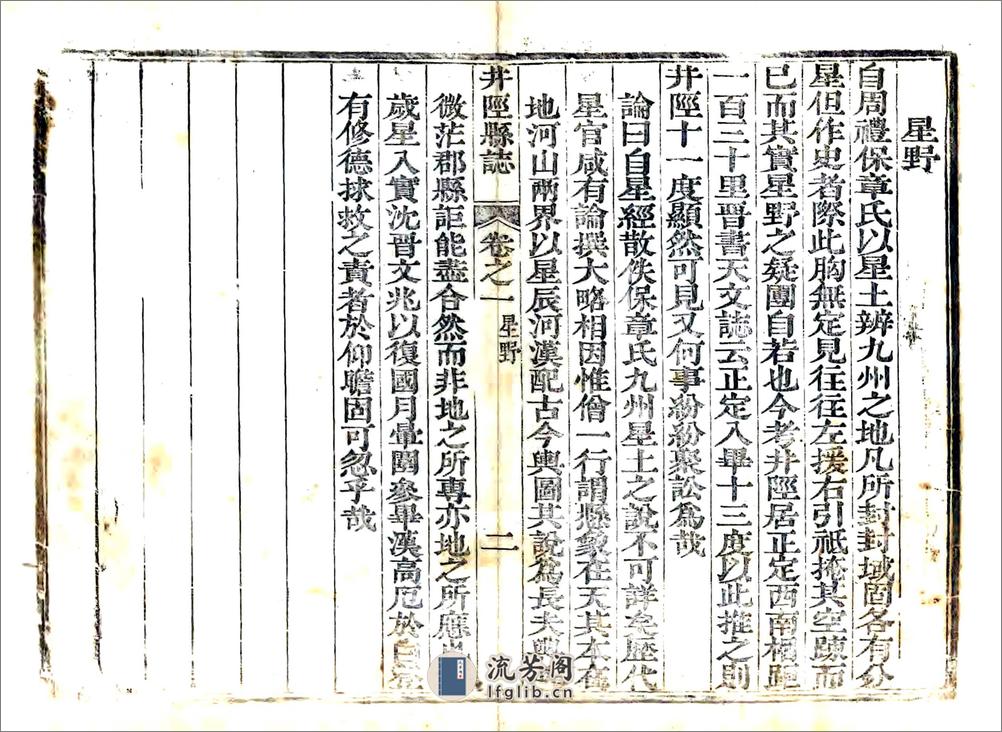 星野
自周禮保章氏以星土辨九州之地凡所封封域固各有分
星但作史者際此胸無定見往往左援右引祗掩其空疎而
已而其實星野之疑團自若也今考井陘居正定西南相距
一百三十里晉書天文誌云正定入畢十三度以此推之則
井陘十一度顯然可見又何事紛紛聚訟為哉
論曰自星經散佚保章氏九州星土之說不可詳矣歷代
星官咸有論撰大略相因惟僧一行謂懸象在天其本在
地河山兩界以星辰河漢配古今輿圖其說為長夫
井陘縣誌
卷之一
星野
二
微茫郡縣詎能盡合然而非地之所專亦地之所應
歲星入實沈晉文兆以復國月暈圍參畢漢高厄於白
有修德捄救之責者於仰瞻固可忽乎哉
流芳阁
lfglib.cn